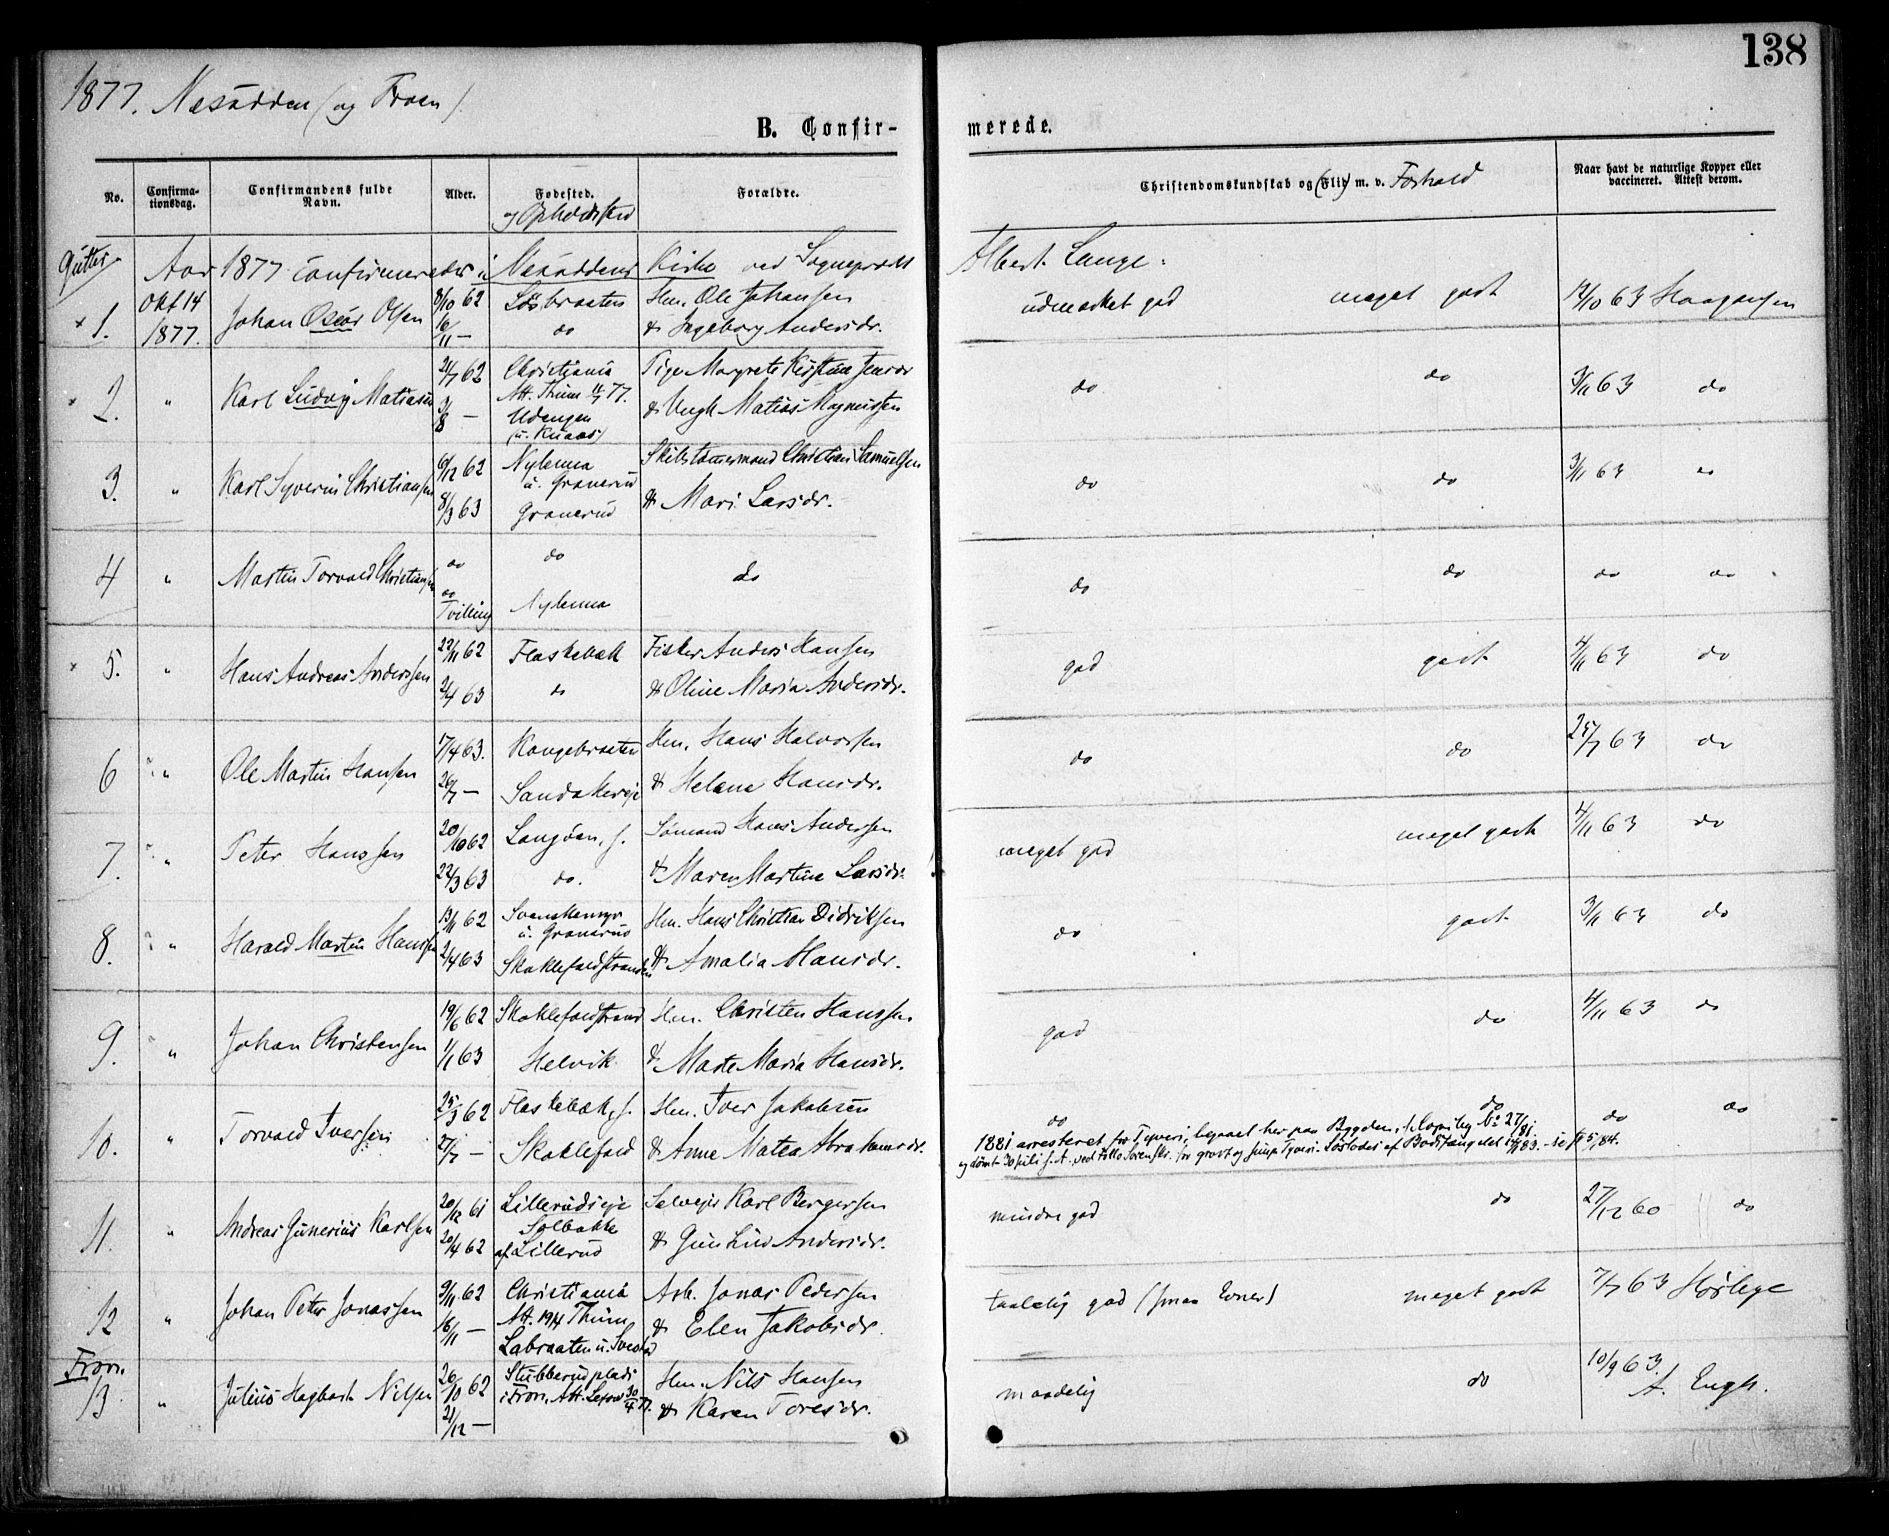 138
1877. Næsodden (og Froen).
B. Confir- merede.
No. Confirma-tionsdag. Confirmandens fulde Navn. Alder. Fødested. og Opholdssted Forældre. Christendomskundskab og (Flid) m. v. Forhold Naar havt de naturlige Kopper eller vaccineret. Attest derom.
Gutter Aar 1877 confirmerede i Næsoddens Kirke ved Sogneprest Albert Lange:
1. Okt 14 Johan Oscar Olsen 8/10 62 Løsbraaten Hm. Ole Johansen udmærket god meget godt 12/10 63 Haagensen
1877. 16/11 — do & Ingeborg Andersdr.
2. " Karl Ludvig Matiasen 21/7 62 Christiania Pige Margrete Kirstine Jensdr do do 3/11 63 do
3/8 — Att. Thim 11/5 77. & Ungk Matias Magnussen
Udengen
(u. Knaas)
3. " Karl Syverin Christiansen 6/12 62 Nylenna Skibstømmermand Christian Samuelsen do do 3/11 63 do
u. Granerud
8/3 63 Granerud & Mari Larsdr.
4 " Martin Torvald Christiansen do do do do do do do
do
Tvilling Nylenna
5. " Hans Andreas Anderssen 22/11 62 Flaskebæk Fisker Anders Hansen god godt 4/11 63 do
2/4 63 do & Oline Maria Andersdr.
6 " Ole Martin Hansen 17/4 63. Kongebraaten Hm. Hans Halvorsen do do 25/7 63 do
26/7 — Sandakereje & Helene Hansdr.
7. " Peter Hanssen 20/10 62 Langøen, s. Sømand Hans Andersen meget god meget godt 4/11 63 do
22/3 63 do. & Maren Martine Larsdr.
8. " Harald Martin Hanssen 13/11 62 Svenskemyr Hm. Hans Christian Didriksen do godt 3/11 63 do
u. Granerud
2/4 63 Skoklefaldstranden & Amalia Hansdr.
9. " Johan Christensen 19/6 62 Skoklefaldstrand Hm. Christen Hanssen god do 4/11 63 do
1/1 63 Helvik & Marte Maria Hansdr.
10. " Torvald Iversen 25/3 62 Flaskebæk, s. Hm. Iver Jakobsen do do do do
27/7 — Skoklefald & Anne Matea Abrahamsdr.
1881 arresteret for Tyveri, begaaet her paa Bygden, s. Copibog No 27/81
og dømt 30 juli s. A. ved Follo Sorenskr. for grovt og simp. Tyveri. Løslades af Bodsfængslet 83.
11. " Andreas Gunerius Karlsen 20/12 61 Lillerudseje Selvejer Karl Bergersen mindre god do 27/12 60 do
Solbakke
20/4 62 af Lillerud & Gunhild Andersdr.
12 " Johan Peter Jonassen 9/11 62 Christiania Arb. Jonas Pedersen taalelig god (smaa Evner) meget godt 7/7 63 Hørbye
Att. 19/4 Thim
16/11 — Labraaten u. Svestad & Elen Jakobsdr.
Fron.
13 " Julius Hagbart Nilsen 26/10 62 Stubberudplads Hm. Nils Hansen maadelig do 10/9 63.
i Fron. Att. 30/4 77. A. Engh.
21/12 — & Karen Toresdr.